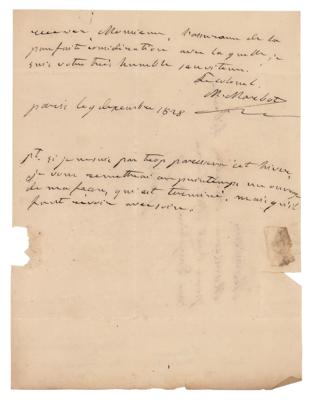 recevez, Monsieur, l'assurance de la
parfaite considération avec laquelle je
suis votre très humble serviteur.
Le colonel
M. Marbot
paris le 9 decembre 1828
pt. si je ne suis pas trop paresseux cet hiver,
je vous remettrai au printemps un ouvrage
de ma façon, qui est terminé, mais qu'il
faut revoir avec soin.